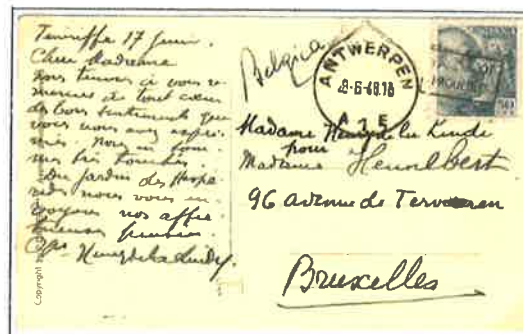 Teneriffe 17 Juin.
Chère Madame
nous tenons à vous re
mercier de tout cœur
des bons sentiments que
vous nous avez expri
més. Nous en som
mes très touchés.
Du jardin des Hespé
rides nous vous en
voyons nos affec
tueuses pensées.
Belgica
ANTWERPEN
-6-48.18
A 1 E
Madame Henry de la Linde
pour
Madame Hennebert
96 avenue de Tervueren
Bruxelles
Copyright